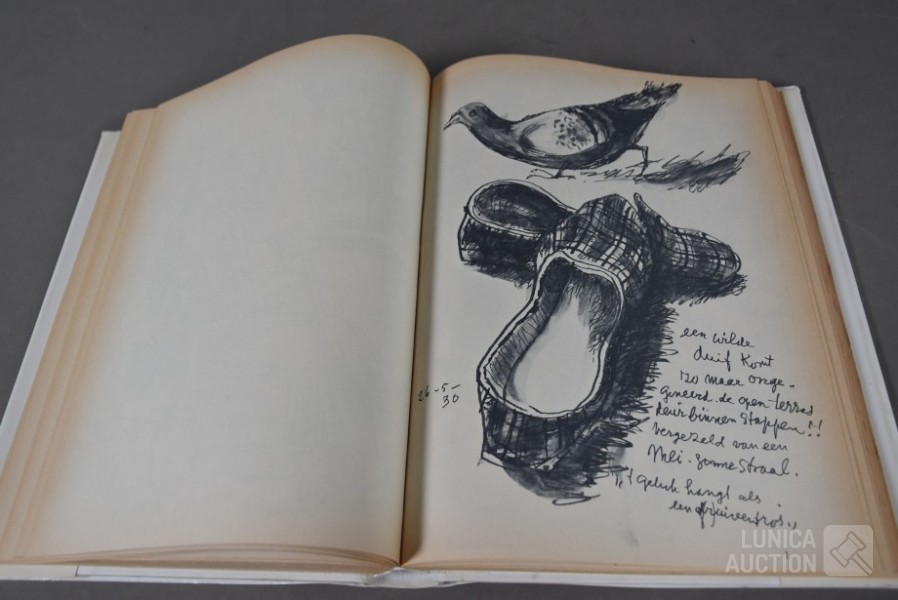 26-5-
30
een wilde
duif komt
zo maar onge-
geneerd de open-terras
deur binnen stappen!!
vergezeld van een
Mei-zonnestraal.
't geluk hangt als
een druiventros..
LUNICA
AUCTION